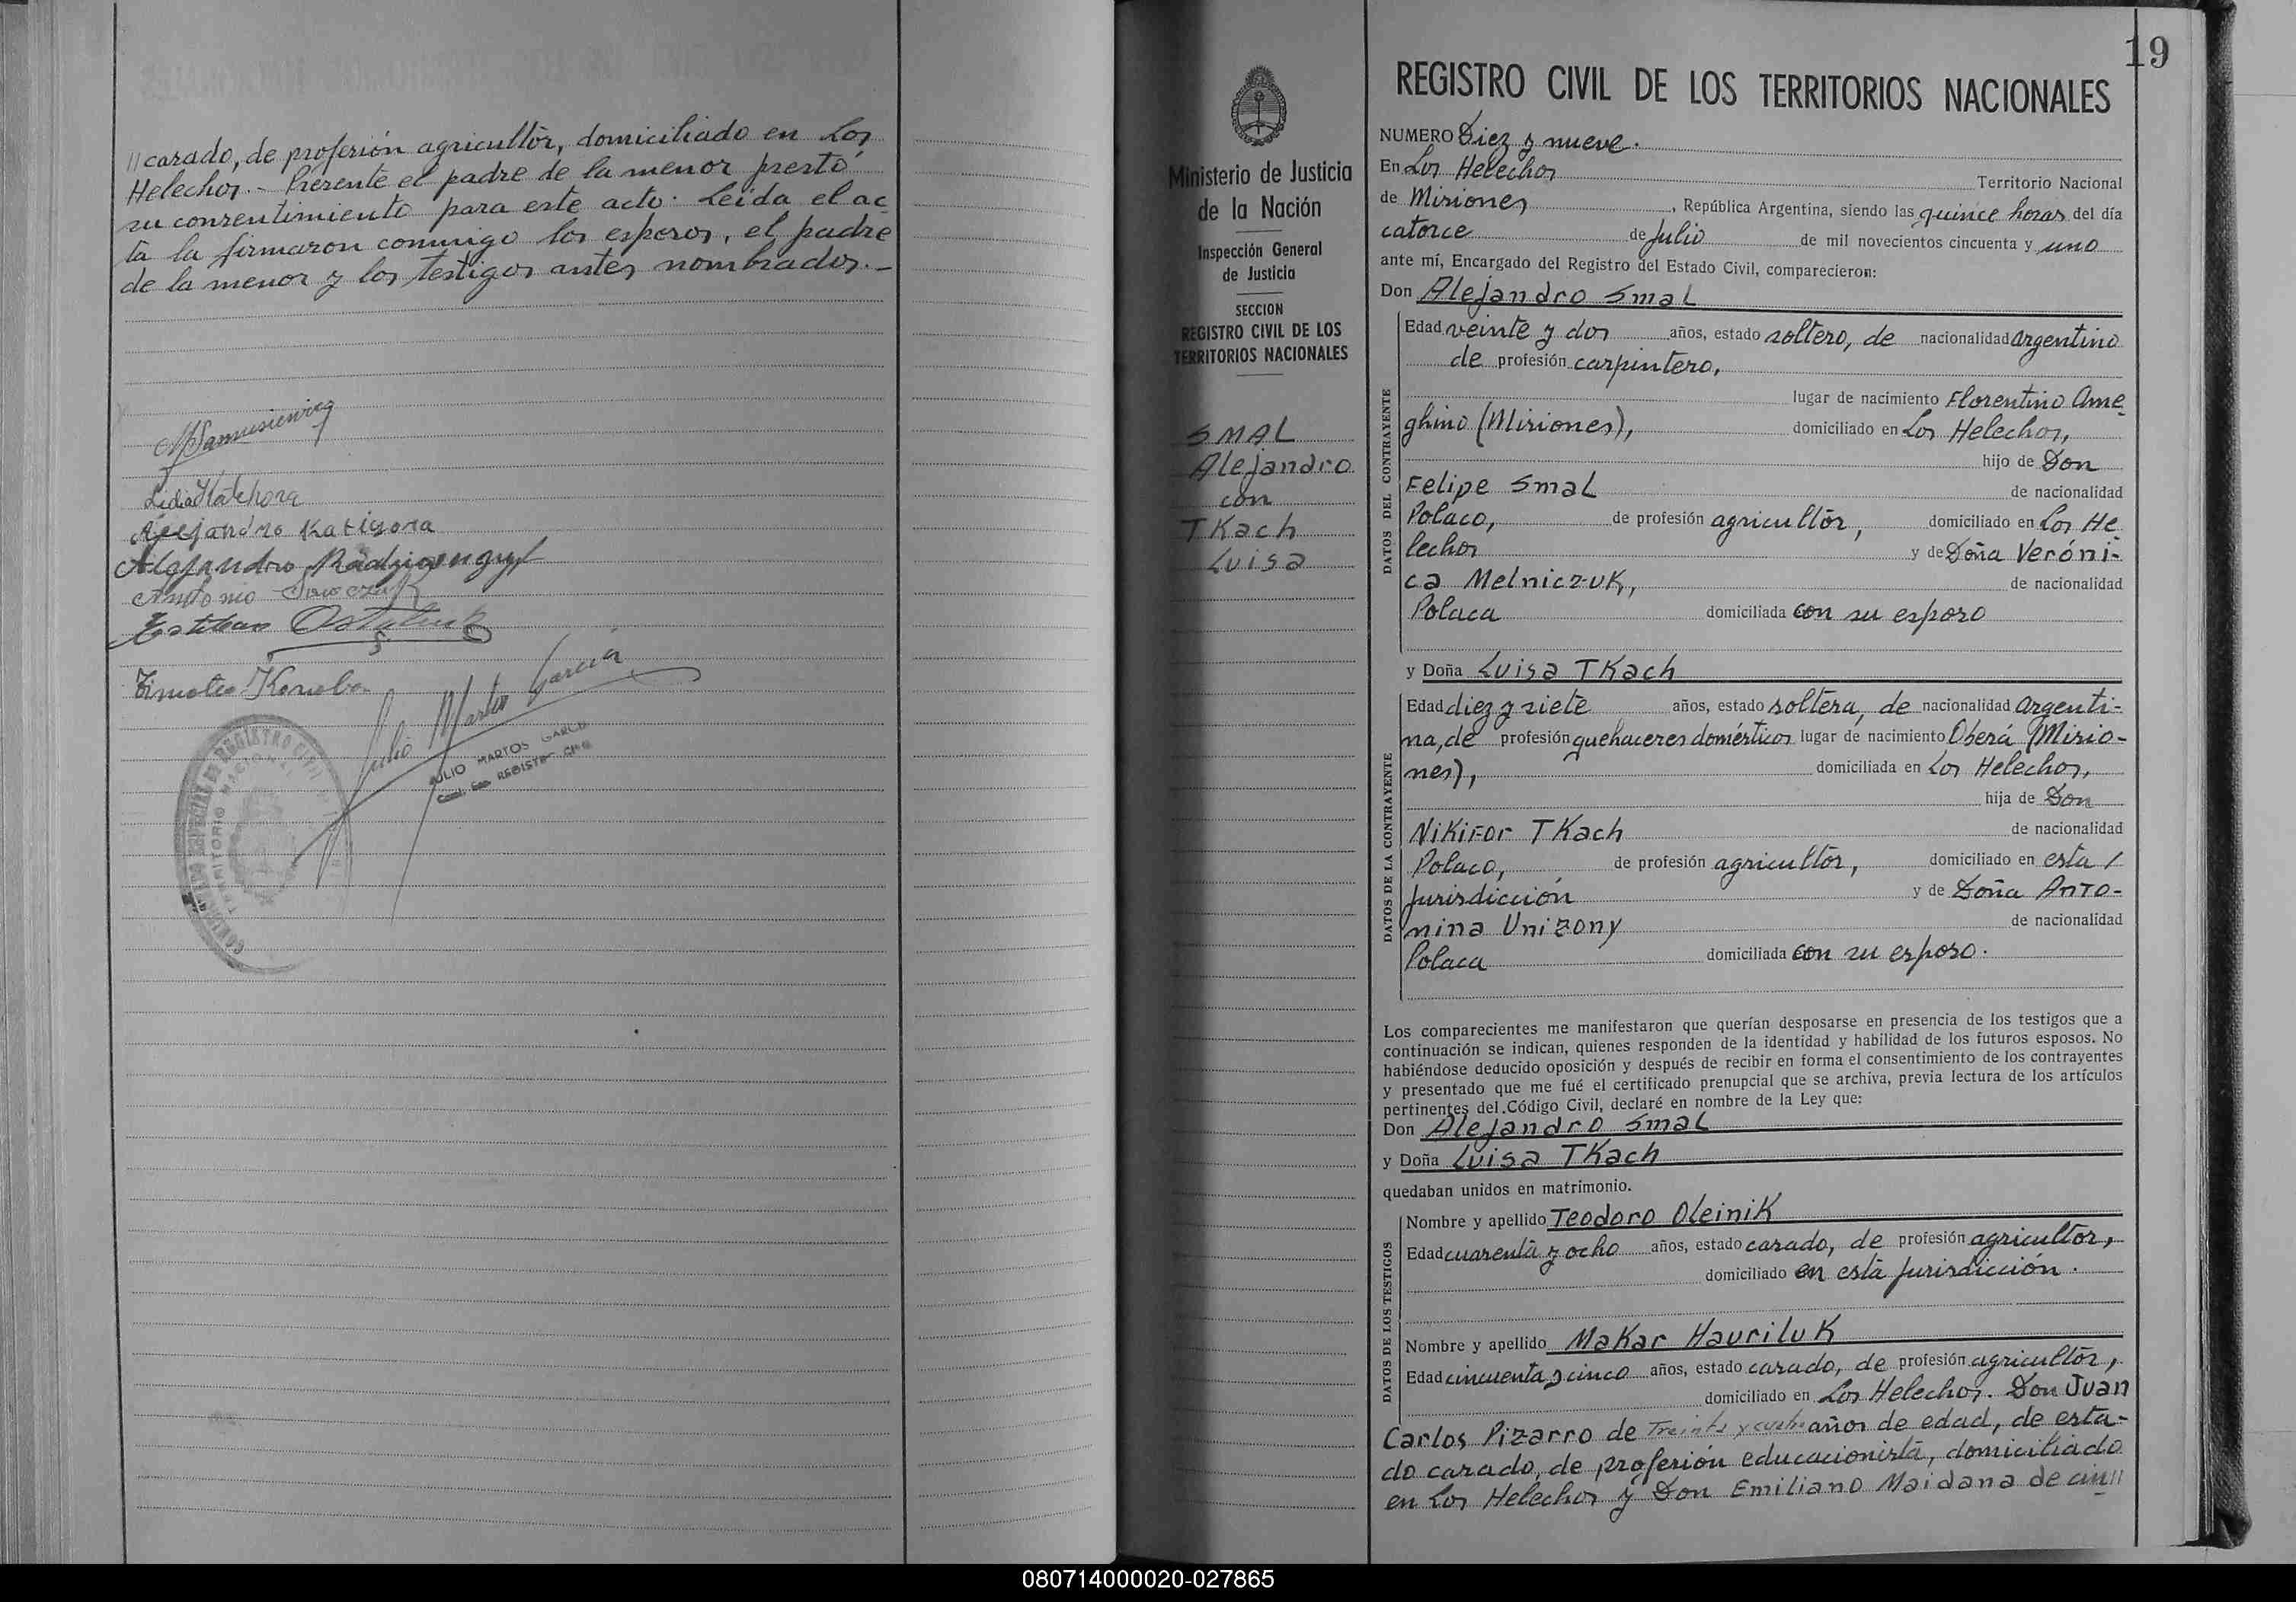 // casado, de profesión agricultor, domiciliado en Los
Helechos.- Presente el padre de la menor prestó
su consentimiento para este acto. Leída el ac
ta la firmaron conmigo los esposos, el padre
de la menor y los testigos antes nombrados.-
Alejandro Katigora
Alejandro
Antonio
Esteban
Timoteo
Julio Martos García
JULIO MARTOS GARCIA
REGISTRO CIVIL
19
REGISTRO CIVIL DE LOS TERRITORIOS NACIONALES
Ministerio de Justicia
de la Nación
Inspección General
de Justicia
SECCION
REGISTRO CIVIL DE LOS
TERRITORIOS NACIONALES
SMAL
Alejandro
con
TKach
Luisa
NUMERO Diez y nueve.
En Los Helechos Territorio Nacional
de Misiones, República Argentina, siendo las quince horas del día
catorce de Julio de mil novecientos cincuenta y uno
ante mí, Encargado del Registro del Estado Civil, comparecieron:
Don Alejandro Smal
DATOS DEL CONTRAYENTE
Edad veinte y dos años, estado soltero, de nacionalidad argentino
de profesión carpintero,
lugar de nacimiento Florentino Ame
ghino (Misiones), domiciliado en Los Helechos,
hijo de Don
Felipe Smal de nacionalidad
Polaco, de profesión agricultor, domiciliado en Los He
lechos y de Doña Veróni-
ca Melniczuk, de nacionalidad
Polaca domiciliada con su esposo
y Doña Luisa TKach
DATOS DE LA CONTRAYENTE
Edad diez y siete años, estado soltera, de nacionalidad argenti-
na, de profesión quehaceres domésticos lugar de nacimiento Oberá (Misio-
nes), domiciliada en Los Helechos,
hija de Don
Nikifor TKach de nacionalidad
Polaco, de profesión agricultor, domiciliado en esta /
Jurisdicción y de Doña Anto-
nina Unizony de nacionalidad
Polaca domiciliada con su esposo.
Los comparecientes me manifestaron que querían desposarse en presencia de los testigos que a
continuación se indican, quienes responden de la identidad y habilidad de los futuros esposos. No
habiéndose deducido oposición y después de recibir en forma el consentimiento de los contrayentes
y presentado que me fué el certificado prenupcial que se archiva, previa lectura de los artículos
pertinentes del Código Civil, declaré en nombre de la Ley que:
Don Alejandro Smal
y Doña Luisa TKach
quedaban unidos en matrimonio.
DATOS DE LOS TESTIGOS
Nombre y apellido Teodoro Oleinik
Edad cuarenta y ocho años, estado casado, de profesión agricultor,
domiciliado en esta Jurisdicción.
Nombre y apellido Makar Hauriluk
Edad cincuenta y cinco años, estado casado, de profesión agricultor,
domiciliado en Los Helechos. Don Juan
Carlos Pizarro de Treinta y cuatro años de edad, de esta-
do casado, de profesión educacionista, domiciliado
en Los Helechos y Don Emiliano Maidana de cin//
080714000020-027865